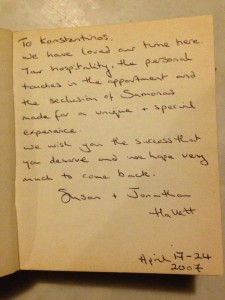 To Konstantinos,
we have loved our time here.
Your hospitality, the personal
touches in the appartment and
the seclusion of Samonas
made for a unique + special
experience.
we wish you the success that
you deserve and we hope very
much to come back.
Susan + Jonathan
Hallett
April 17-24
2007